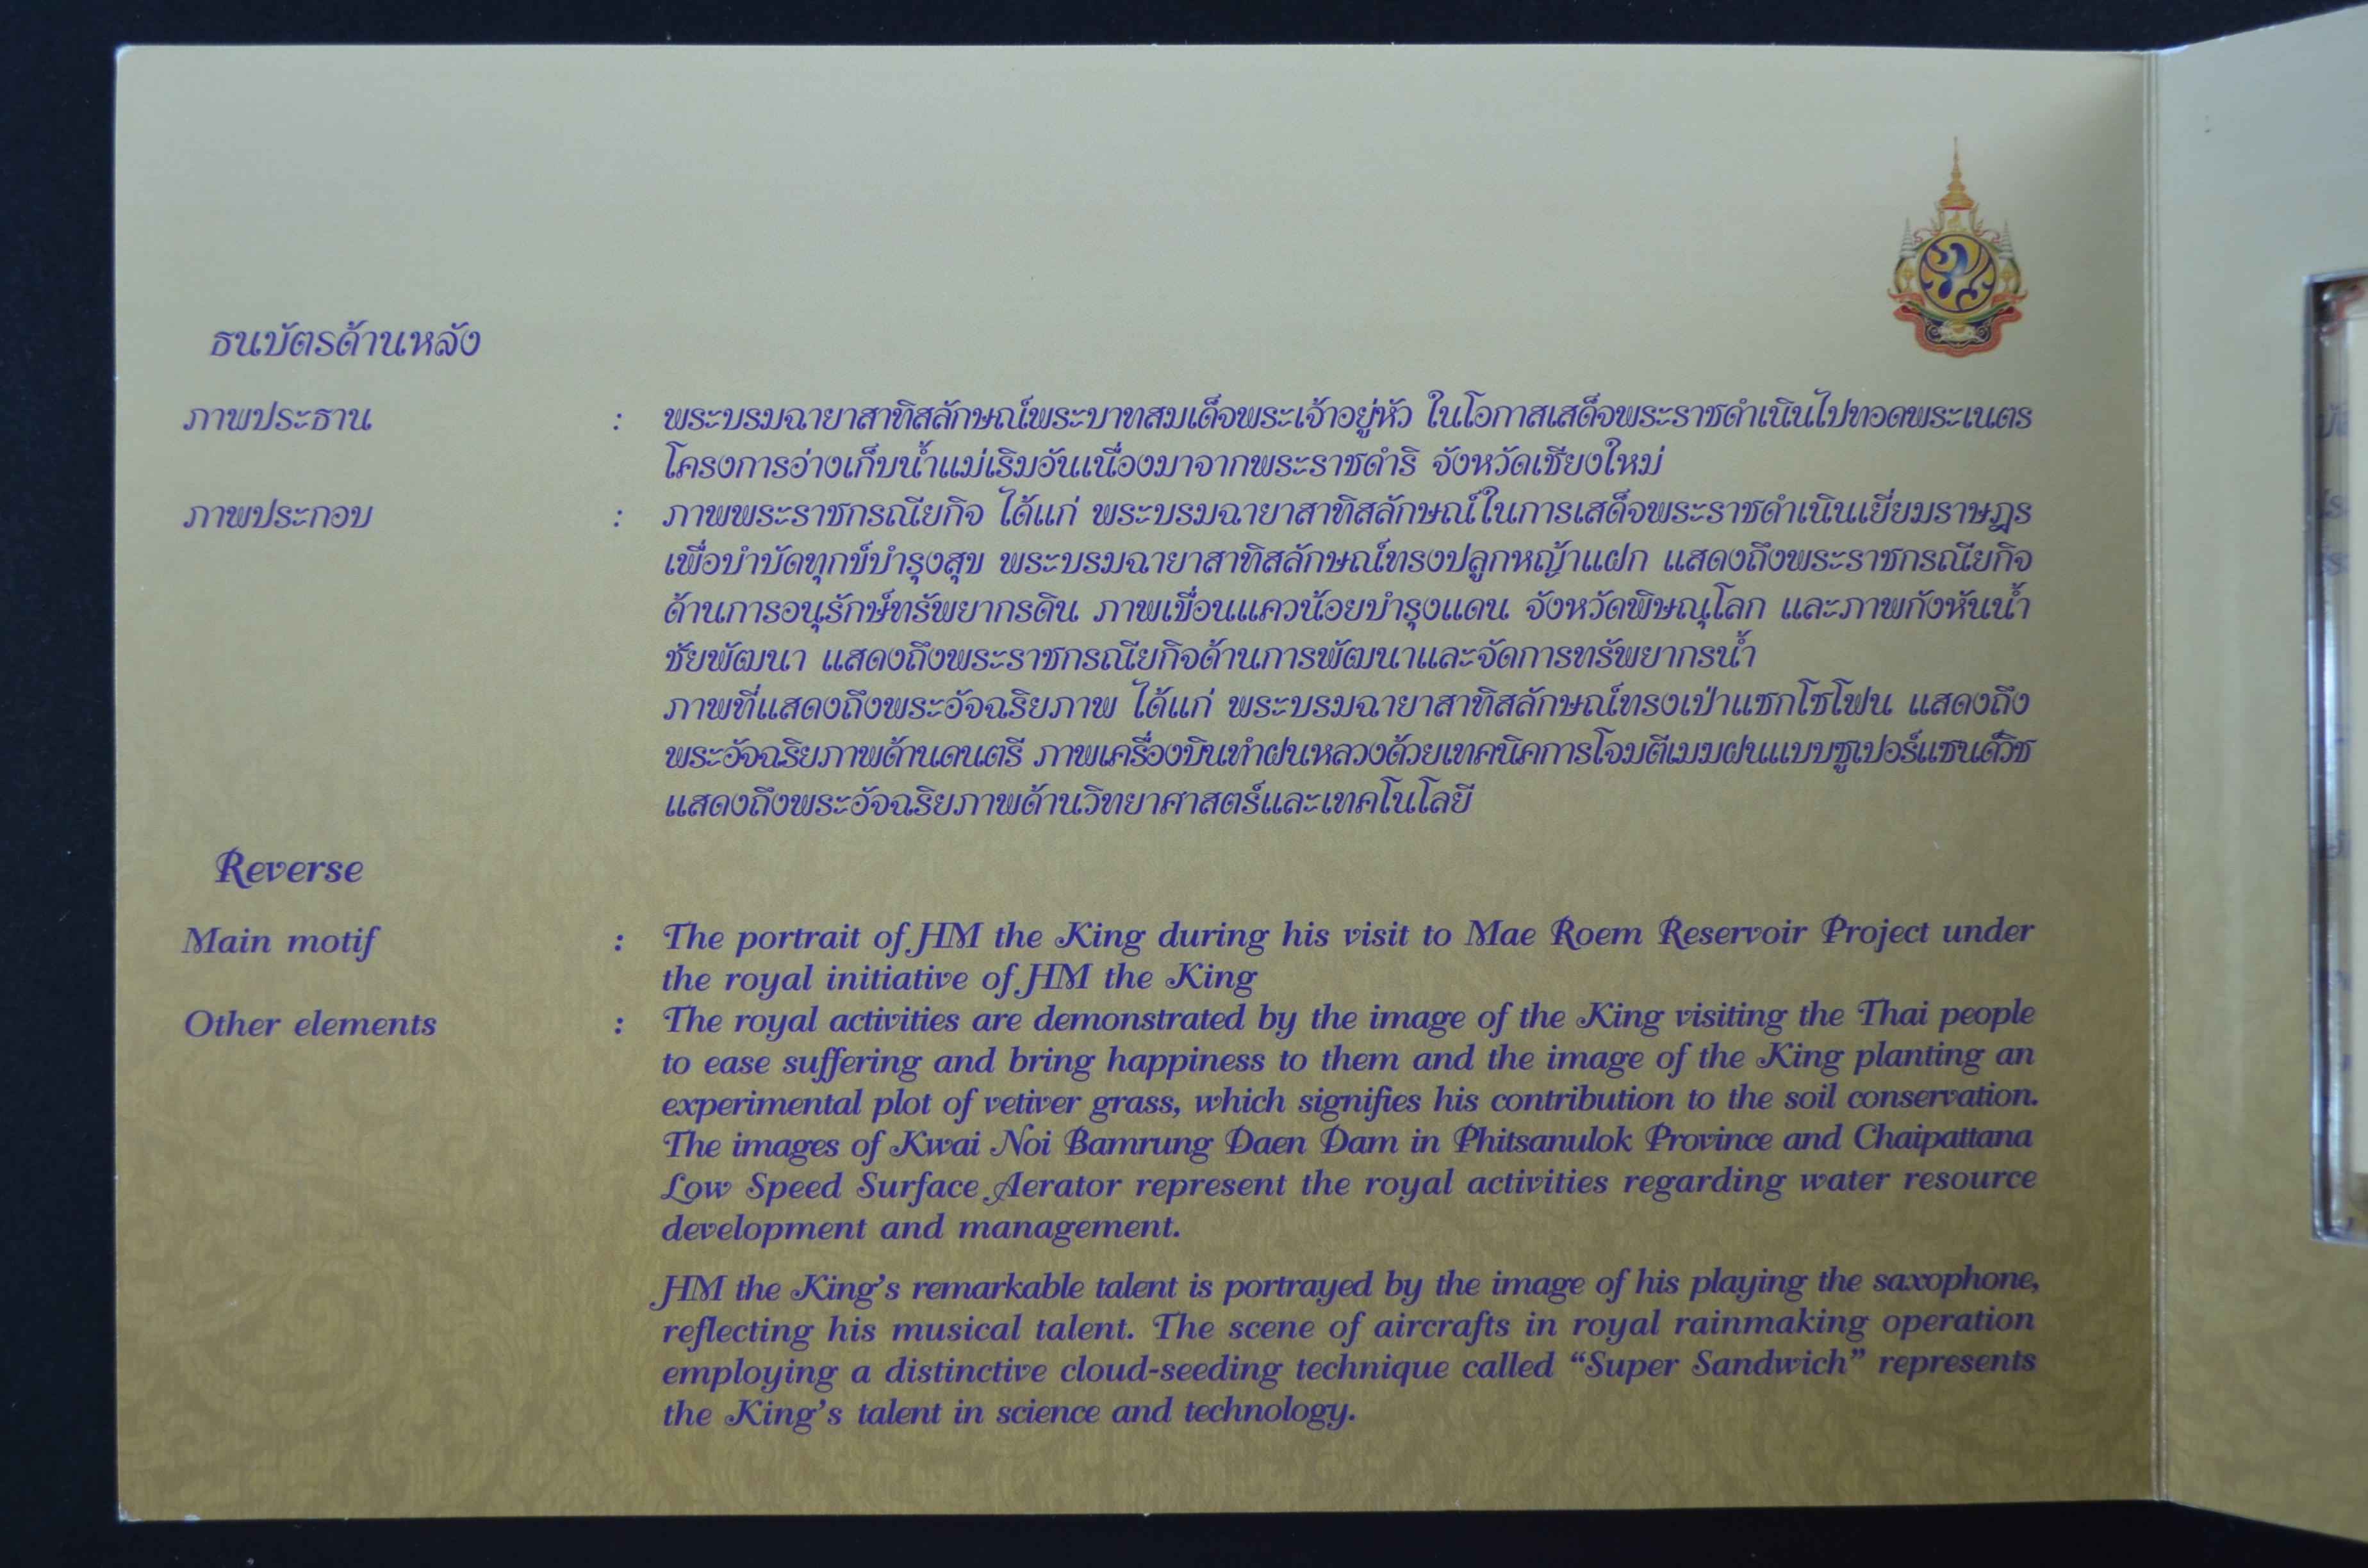 ธนบัตรด้านหลัง
ภาพประธาน : พระบรมฉายาสาทิสลักษณ์พระบาทสมเด็จพระเจ้าอยู่หัว ในโอกาสเสด็จพระราชดำเนินไปทอดพระเนตร
โครงการอ่างเก็บน้ำแม่เริมอันเนื่องมาจากพระราชดำริ จังหวัดเชียงใหม่
ภาพประกอบ : ภาพพระราชกรณียกิจ ได้แก่ พระบรมฉายาสาทิสลักษณ์ในการเสด็จพระราชดำเนินเยี่ยมราษฎร
เพื่อบำบัดทุกข์บำรุงสุข พระบรมฉายาสาทิสลักษณ์ทรงปลูกหญ้าแฝก แสดงถึงพระราชกรณียกิจ
ด้านการอนุรักษ์ทรัพยากรดิน ภาพเขื่อนแควน้อยบำรุงแดน จังหวัดพิษณุโลก และภาพกังหันน้ำ
ชัยพัฒนา แสดงถึงพระราชกรณียกิจด้านการพัฒนาและจัดการทรัพยากรน้ำ
ภาพที่แสดงถึงพระอัจฉริยภาพ ได้แก่ พระบรมฉายาสาทิสลักษณ์ทรงเป่าแซกโซโฟน แสดงถึง
พระอัจฉริยภาพด้านดนตรี ภาพเครื่องบินทำฝนหลวงด้วยเทคนิคการโจมตีเมฆฝนแบบซูเปอร์แซนด์วิช
แสดงถึงพระอัจฉริยภาพด้านวิทยาศาสตร์และเทคโนโลยี
Reverse
Main motif : The portrait of HM the King during his visit to Mae Roem Reservoir Project under
the royal initiative of HM the King
Other elements : The royal activities are demonstrated by the image of the King visiting the Thai people
to ease suffering and bring happiness to them and the image of the King planting an
experimental plot of vetiver grass, which signifies his contribution to the soil conservation.
The images of Kwai Noi Bamrung Daen Dam in Phitsanulok Province and Chaipattana
Low Speed Surface Aerator represent the royal activities regarding water resource
development and management.
HM the King's remarkable talent is portrayed by the image of his playing the saxophone,
reflecting his musical talent. The scene of aircrafts in royal rainmaking operation
employing a distinctive cloud-seeding technique called “Super Sandwich” represents
the King's talent in science and technology.